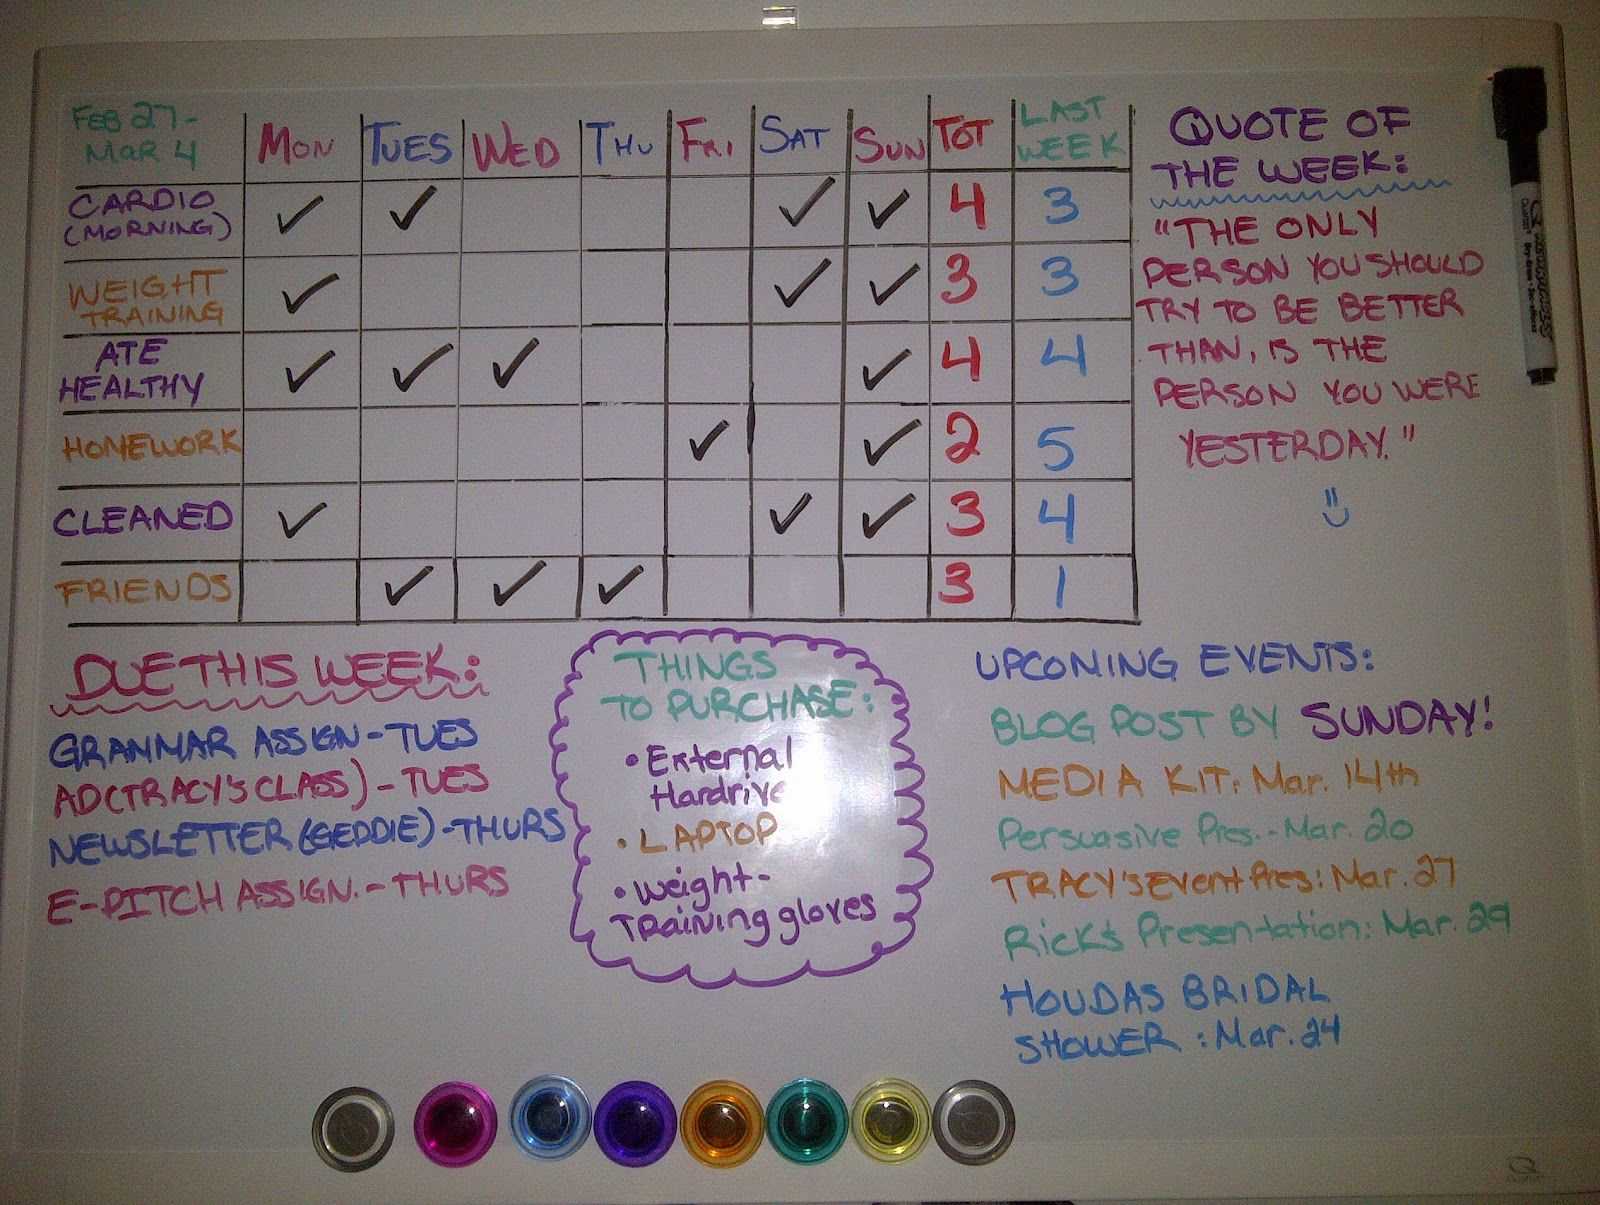 FEB 27- MON TUES WED THU FRI SAT SUN TOT LAST
MAR 4 WEEK
CARDIO ✓ ✓ ✓ ✓ 4 3
(MORNING)
WEIGHT ✓ ✓ ✓ 3 3
TRAINING
ATE ✓ ✓ ✓ ✓ 4 4
HEALTHY
HOMEWORK ✓ ✓ 2 5
CLEANED ✓ ✓ ✓ 3 4
FRIENDS ✓ ✓ ✓ 3 1
QUOTE OF
THE WEEK:
"THE ONLY
PERSON YOU SHOULD
TRY TO BE BETTER
THAN, IS THE
PERSON YOU WERE
YESTERDAY."
DUE THIS WEEK:
GRAMMAR ASSIGN - TUES
AD(TRACY'S CLASS) - TUES
NEWSLETTER (GEDDIE) - THURS
E-PITCH ASSIGN. - THURS
THINGS
TO PURCHASE:
• External
Hardrive
• LAPTOP
• Weight-
TRaining gloves
UPCOMING EVENTS:
BLOG POST BY SUNDAY!
MEDIA KIT: Mar. 14th
Persuasive Pres. - Mar. 20
TRACY'S Event Pres: Mar. 27
Rick's Presentation: Mar. 29
HOUDAS BRIDAL
SHOWER : Mar. 24